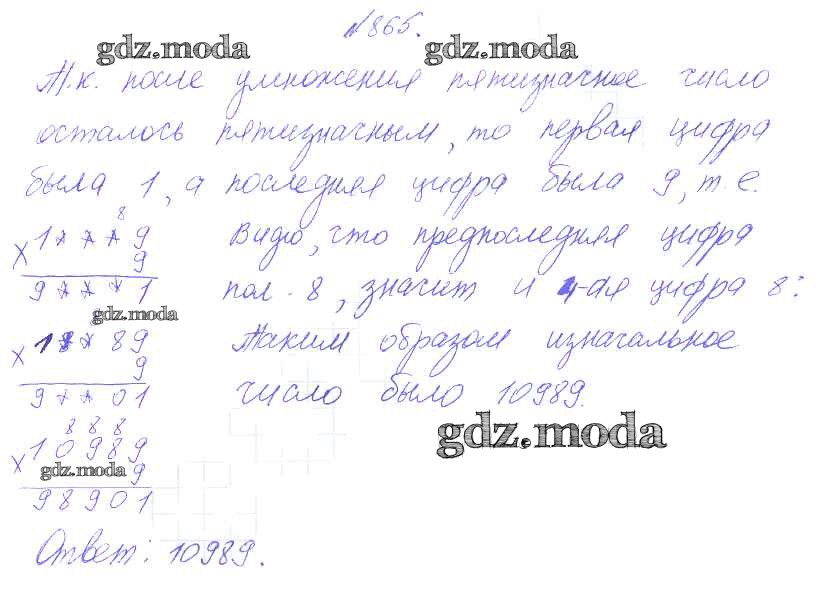 №865.
gdz.moda gdz.moda
Т.к. после умножения пятизначное число
осталось пятизначным, то первая цифра
была 1, а последняя цифра была 9, т.е.
8
× 1 * * * 9 Видно, что предпоследняя цифра
9
9 * * * 1 пол. 8, значит и 4-ая цифра 8:
gdz.moda
× 1 * * 8 9 Таким образом изначальное
9
9 * * 0 1 число было 10989.
8 8 8
gdz.moda
× 1 0 9 8 9
gdz.moda 9
9 8 9 0 1
Ответ: 10989.